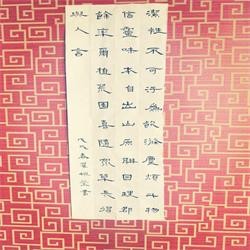 潔性不可污為飲滌塵煩此物
信靈味本自出山原聊因理郡
餘率爾植荒園喜隨眾草長得
人言
戊戌春書